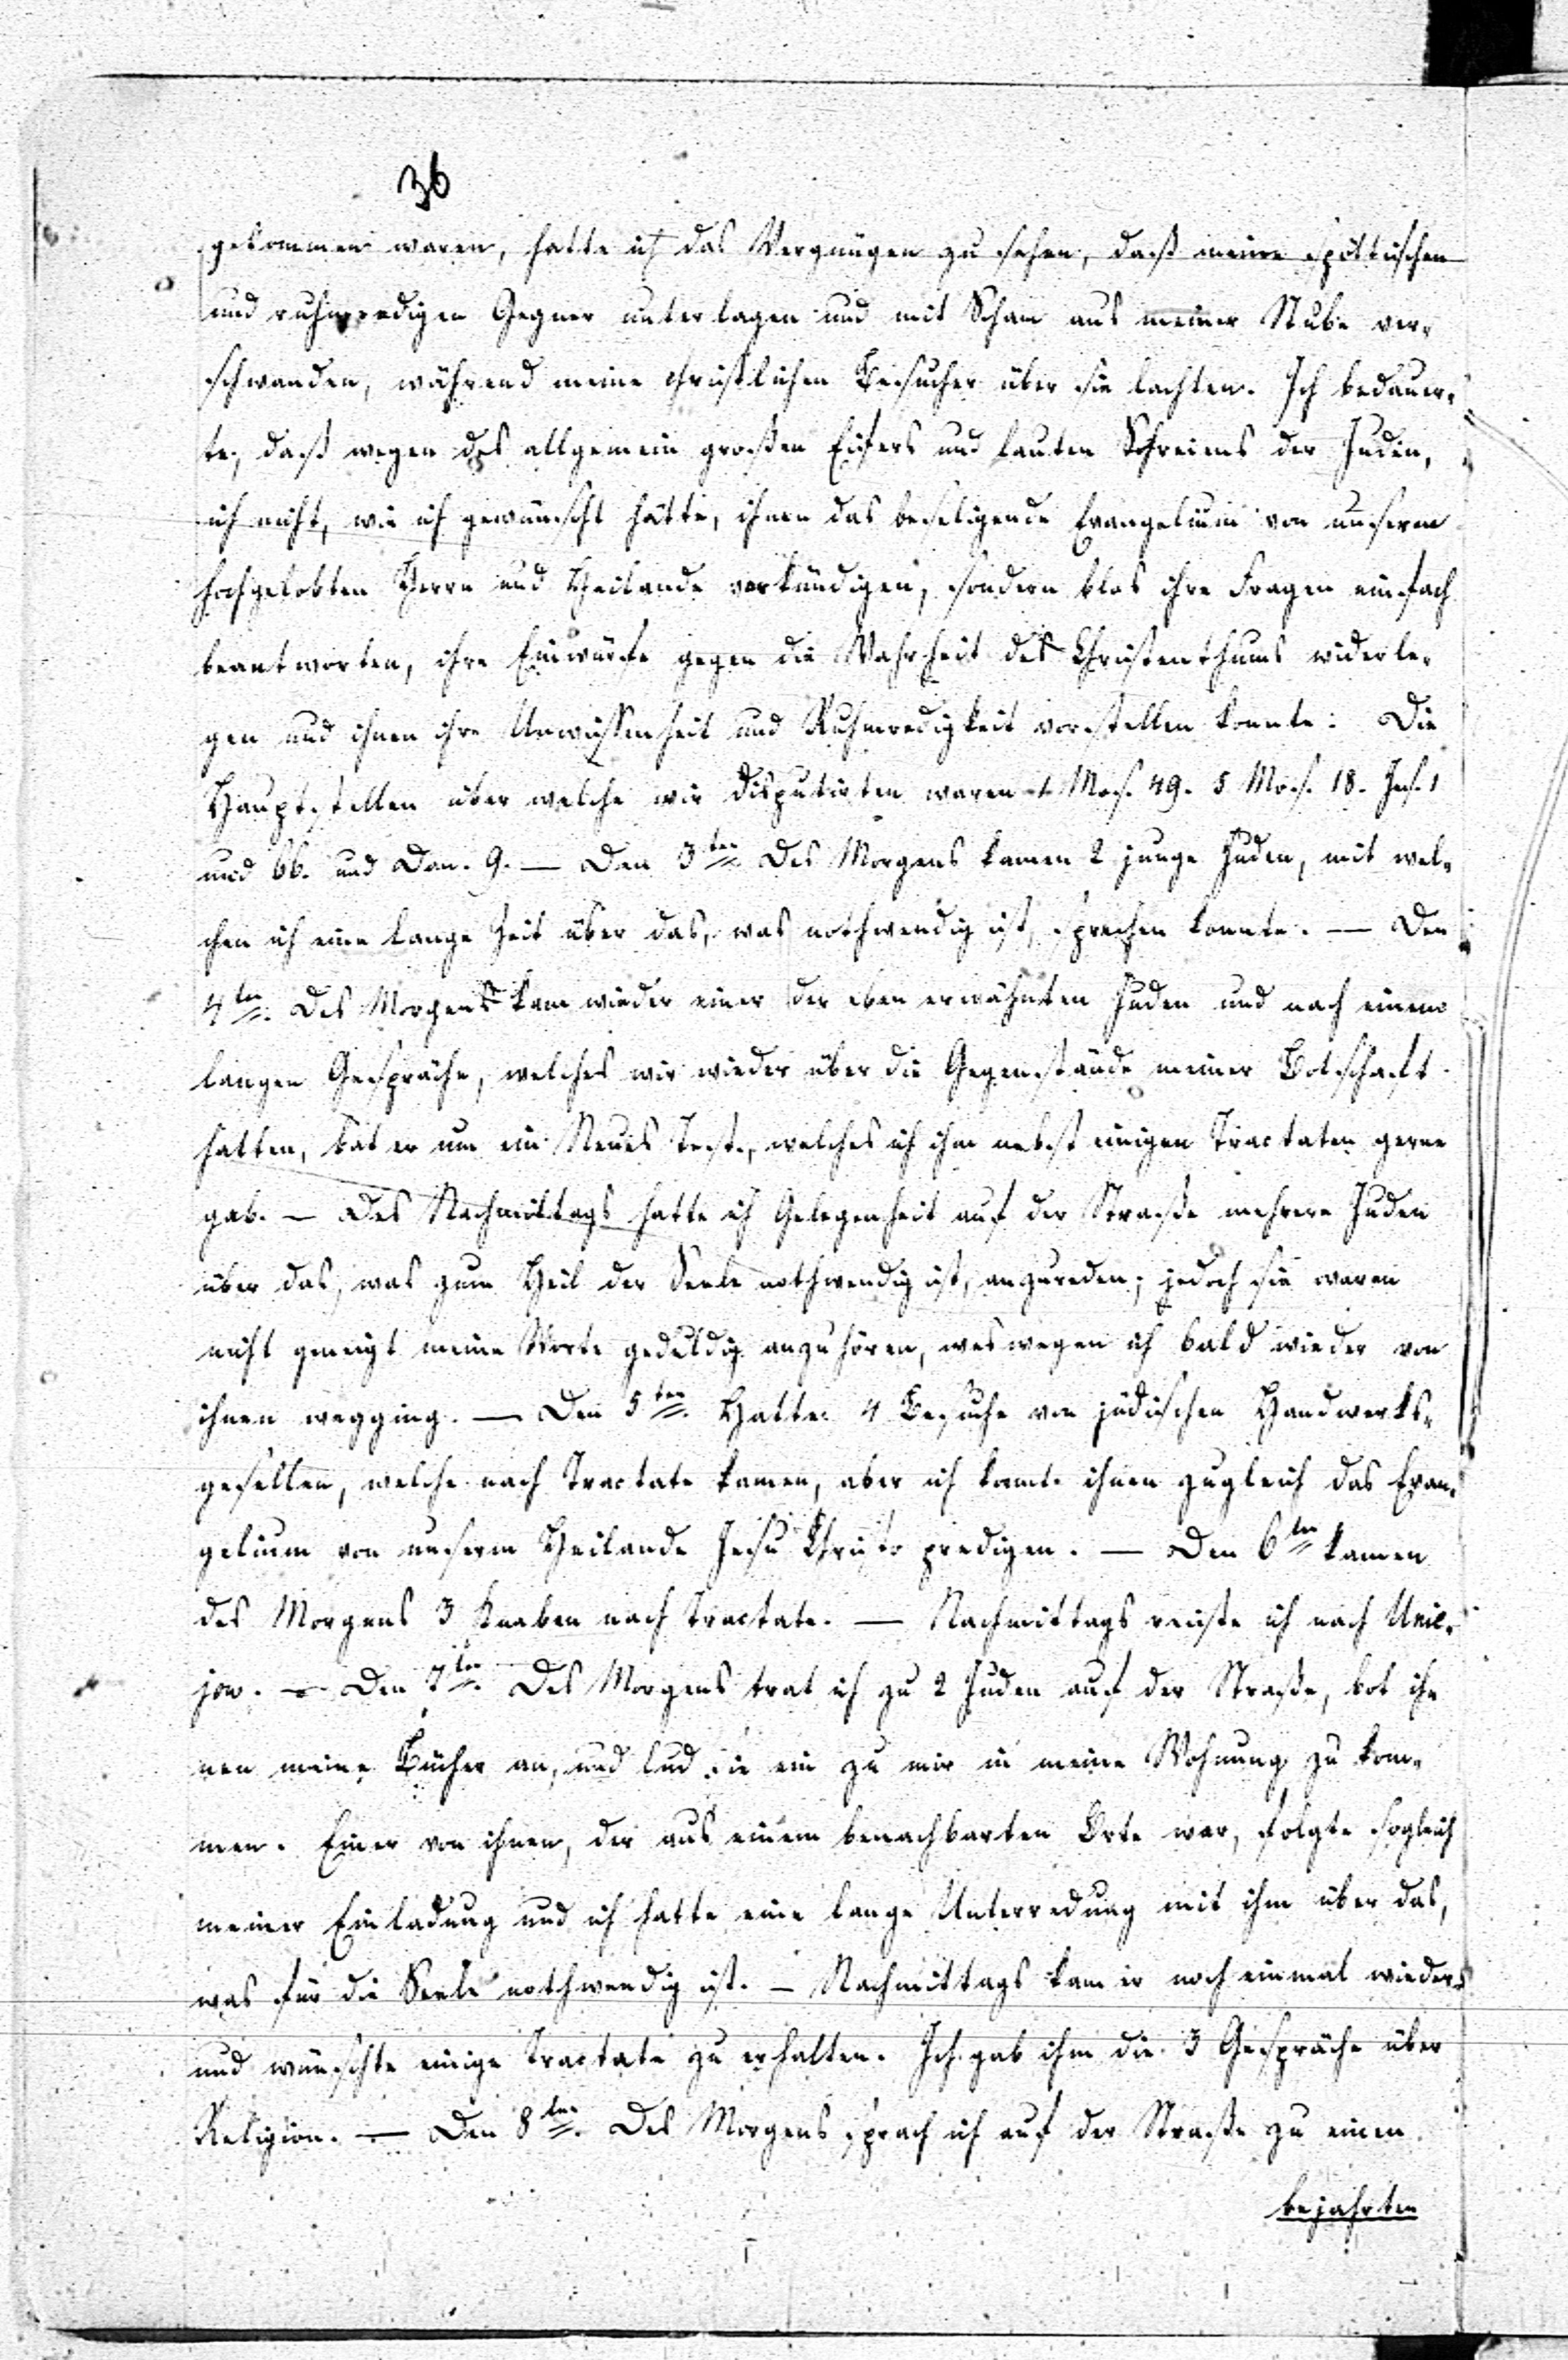 36
gekommen waren, hatte ich das Vergnügen zu sehen, daß meine spöttischen
und ruhmredigen Gegner unterlagen und mit Scham aus meiner Stube ver-
schwanden, während meine christlichen Besucher über sie lachten. Ich bedauer-
te, daß wegen des allgemein großen Eifers und lauten Schreiens der Juden,
ich nicht, wie ich gewünscht hätte, ihnen das beseligende Evangelium von unserem
hochgelobten Herrn und Heilande verkündigen, sondern blos ihre Fragen einfach
beantworten, ihre Einwürfe gegen die Wahrheit des Christenthums widerle-
gen und ihnen ihre Unwissenheit und Ruhmredigkeit vorstellen konnte. Die
Hauptstellen über welche wir disputirten waren 1 Mos. 49. 5 Mos. 18. Jes. 1
und 66. und Dan. 9. — Den 3ten Des Morgens kamen 2 junge Juden, mit wel-
chen ich eine lange Zeit über das, was nothwendig ist, sprechen konnte. — Den
4ten. Des Morgens kam wieder einer der eben erwähnten Juden und nach einem
langen Gespräche, welches wir wieder über die Gegenstände meiner Botschaft
hatten, bat er um ein Neues Test., welches ich ihm nebst einigen Tractaten gerne
gab. — Des Nachmittags hatte ich Gelegenheit auf der Straße mehrere Juden
über das, was zum Heil der Seele nothwendig ist, anzureden; jedoch sie waren
nicht geneigt meine Worte geduldig anzuhören, weswegen ich bald wieder von
ihnen wegging. — Den 5ten. Hatte 4 Besuche von jüdischen Handwerks-
gesellen, welche nach Tractate kamen, aber ich konnte ihnen zugleich das Evan-
gelium von unserm Heilande Jesu Christo predigen. — Den 6ten kamen
des Morgens 3 Knaben nach Tractate. — Nachmittags reiste ich nach Unie-
jow. — Den 7ten. Des Morgens trat ich zu 2 Juden auf der Straße, bot ih-
nen meine Bücher an, und lud sie ein zu mir in meine Wohnung zu kom-
men. Einer von ihnen, der aus einem benachbarten Orte war, folgte sogleich
meiner Einladung und ich hatte eine lange Unterredung mit ihm über das,
was für die Seele nothwendig ist. — Nachmittags kam er noch einmal wieder
und wünschte einige Tractate zu erhalten. Ich gab ihm die 3 Gespräche über
Religion. — Den 8ten. Des Morgens sprach ich auf der Straße zu einem
bejahrten